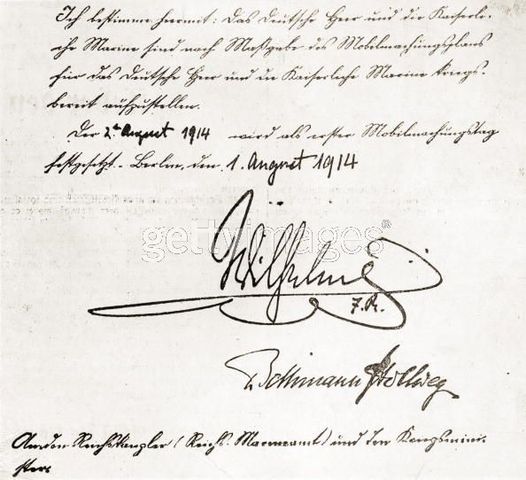 Ich bestimme hiermit: Das Deutsche Heer und die Kaiserli-
che Marine sind nach Maßgabe des Mobilmachungsplans
für das Deutsche Heer und die Kaiserliche Marine kriegs-
bereit aufzustellen.
Der 2te August 1914 wird als erster Mobilmachungstag
festgesetzt. Berlin, den 1. August 1914
gettyimages®
Wilhelm
I.R.
v. Bethmann Hollweg
An den Reichskanzler (Reichs-Marineamt) und den Kriegsmini-
ster.